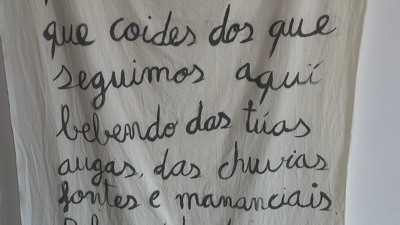 que coides dos que
seguimos aquí
bebendo das túas
augas, das chuvias
fontes e mananciais.